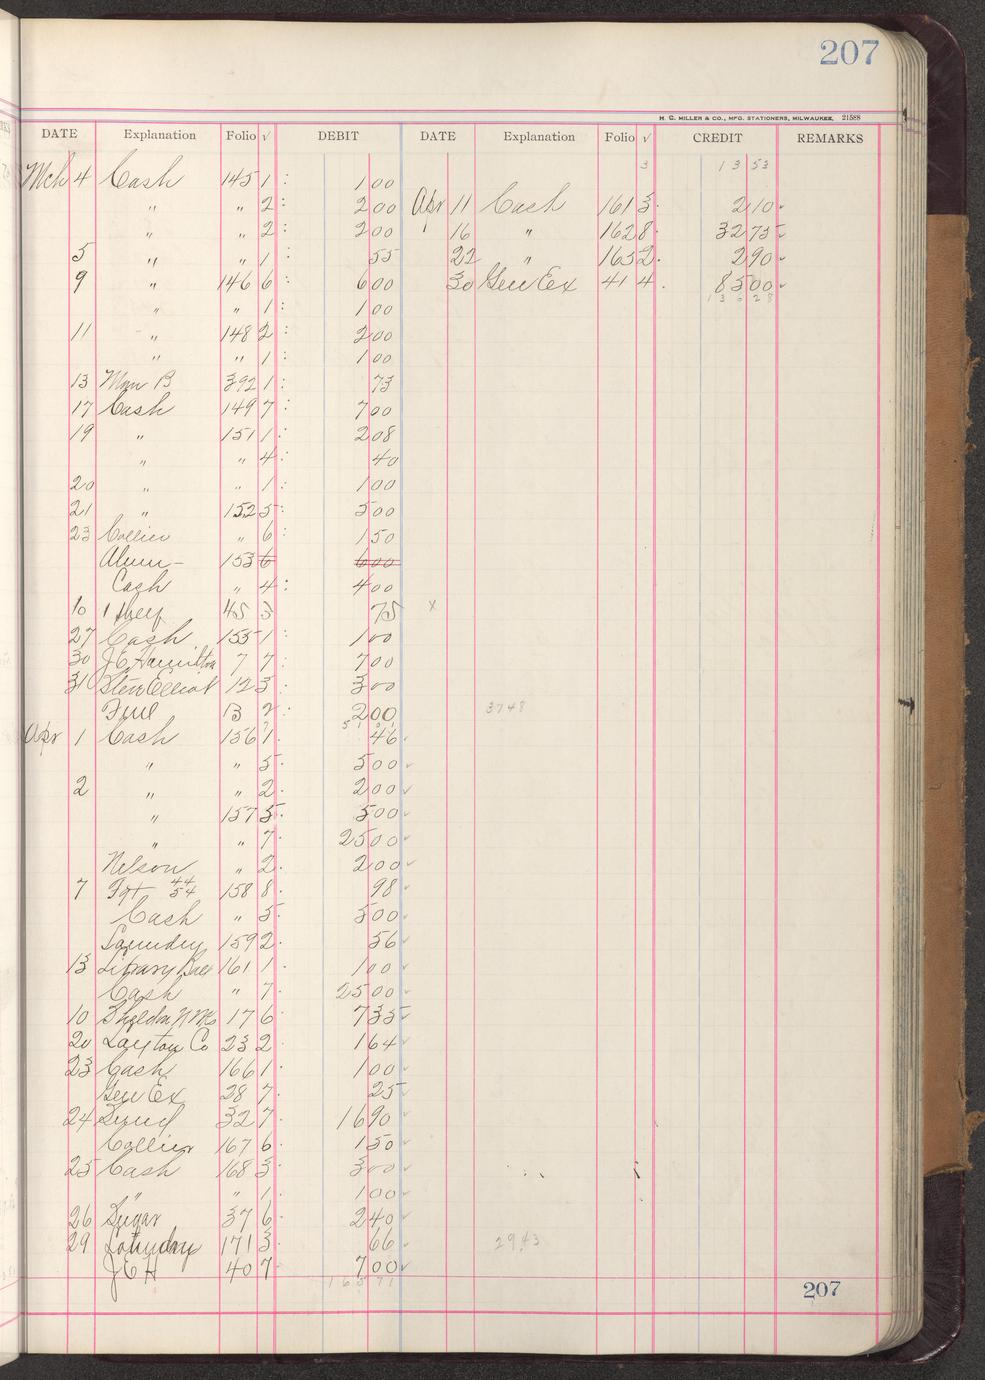 207
H. C. MILLER & CO., MFG. STATIONERS, MILWAUKEE, 21588
DATE Explanation Folio √ DEBIT DATE Explanation Folio √ CREDIT REMARKS
3 13 53
Mch 4 Cash 145 1 : 1 00
" " 2 : 2 00 Apr 11 Cash 161 3 . 2 10
" " 2 : 2 00 16 " 162 8 . 32 75
5 " " 1 : 55 22 " 163 2 . 2 90
9 " 146 6 : 6 00 30 Gen Ex 41 4 . 85 00
136 28
" " 1 : 1 00
11 " 148 2 : 2 00
" " 1 : 1 00
13 Man B 392 1 : 73
17 Cash 149 7 : 7 00
19 " 151 1 : 2 08
" " 4 : 40
20 " " 1 : 1 00
21 " 152 5 : 5 00
23 Collier " 6 : 1 50
153 6 6 00
Cash " 4 : 4 00
10 45 3 75 x
27 Cash 155 1 : 1 00
30 J E Hamilton 7 7 : 7 00
31 Elliot 12 3 : 3 00
Fuel 13 2 : 2 00 3748
Apr 1 Cash 156 1 46
" " 5 . 5 00
2 " " 2 . 2 00
" 157 5 . 5 00
" " 7 . 25 00
Nelson " 2 . 2 00
7 Fgt 44 54 158 8 . 98
Cash " 5 . 5 00
Laundry 159 2 . 56
13 Library 161 1 . 1 00
Cash " 7 . 25 00
10 Sheldon 17 6 7 35
20 Layton Co 23 2 1 64
23 Cash 166 1 1 00
Gen Ex 28 7 . 25
24 32 7 . 16 90
Collier 167 6 . 1 50
25 Cash 168 3 . 3 00
" " 1 . 1 00
26 Sugar 37 6 . 2 40
29 171 3 . 66 2943
J E H 40 7 . 7 00
207